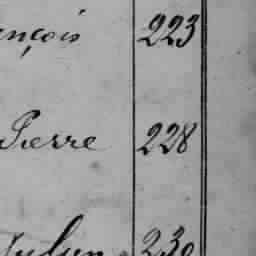 ançois 223
Pierre 228
Julien 230